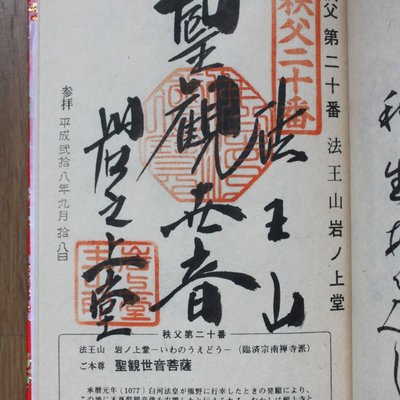 秩父第二十番 法王山岩ノ上堂
秩父二十番
法王山
聖観世音
岩之上堂
参拝 平成弐拾八年九月拾八日
秩父第二十番
法王山 岩ノ上堂－いわのうえどう－(臨済宗南禅寺派)
ご本尊 聖観世音菩薩
承暦元年(1077)白河法皇が熊野に行幸したときの発願により、